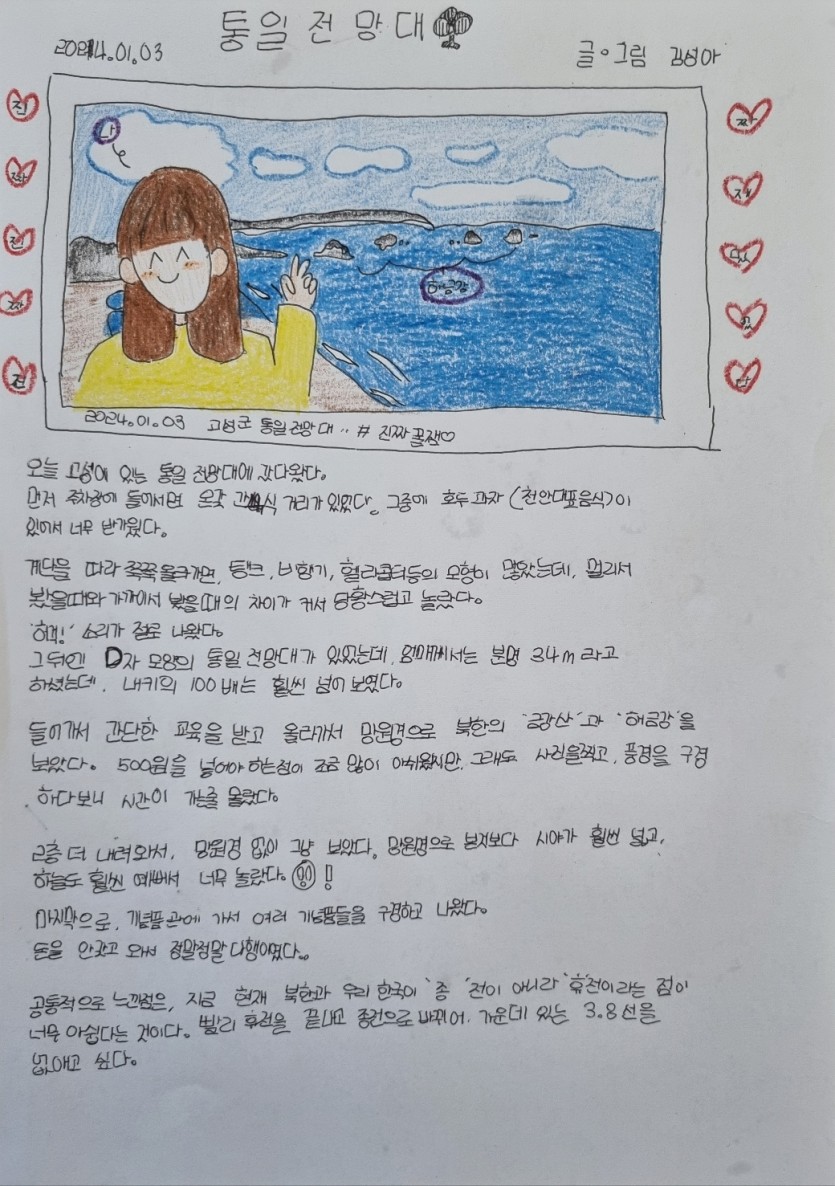 통일 전망대
2024.01.03
글•그림 김성아
나
해금강
진
짜
진
짜
진
짜
재
밌
었
다
2024.01.03 고성군 통일전망대.. # 진짜꿀잼♡
오늘 고성에 있는 통일 전망대에 갔다왔다.
먼저 주차장에 들어서면 온갖 간식 거리가 있었다. 그중에 호두 과자 (천안대표음식)이
있어서 너무 반가웠다.
계단을 따라 쭉쭉올라가면, 탱크, 비행기, 헬리콥터등의 모형이 많았는데, 멀리서
봤을때와 가까이서 봤을때의 차이가 커서 당황스럽고 놀랐다.
'허걱!' 소리가 절로 나왔다.
그 뒤엔 D자 모양의 통일 전망대가 있었는데, 엄마께서는 분명 34m 라고
하셨는데, 내키의 100배는 훨씬 넘어 보였다.
들어가서 간단한 교육을 받고 올라가서 망원경으로 북한의 '금강산'과 '해금강'을
보았다. 500원을 넣어야 하는점이 조금 많이 아쉬웠지만, 그래도 사진을찍고, 풍경을 구경
하다보니 시간이 가는줄 몰랐다.
2층 더 내려와서, 망원경 없이 그냥 보았다. 망원경으로 본지보다 시야가 훨씬 넓고,
하늘도 훨씬 예뻐서 너무 놀랐다. !
마지막으로, 기념품관에 가서 여러 기념품들을 구경하고 나왔다.
돈을 안갖고 와서 정말정말 다행이였다..
공통적으로 느낀점은, 지금 현재 북한과 우리 한국이 '종'전이 아니라 '휴'전이라는 점이
너무 아쉽다는 것이다. 빨리 휴전을 끝내고 종전으로 바뀌어, 가운데 있는 3.8선을
없애고 싶다.